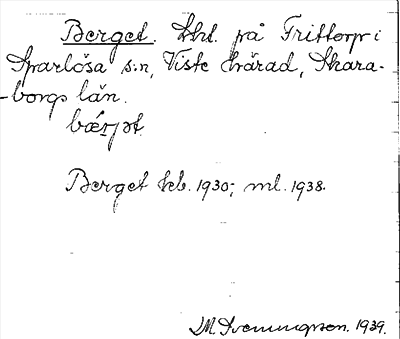 Berget. Lht. på Frittorp i
Sparlösa s:n, Viste härad, Skara-
borgs län.
Berget kb. 1930; ml. 1938.
M. Svenungson. 1939.